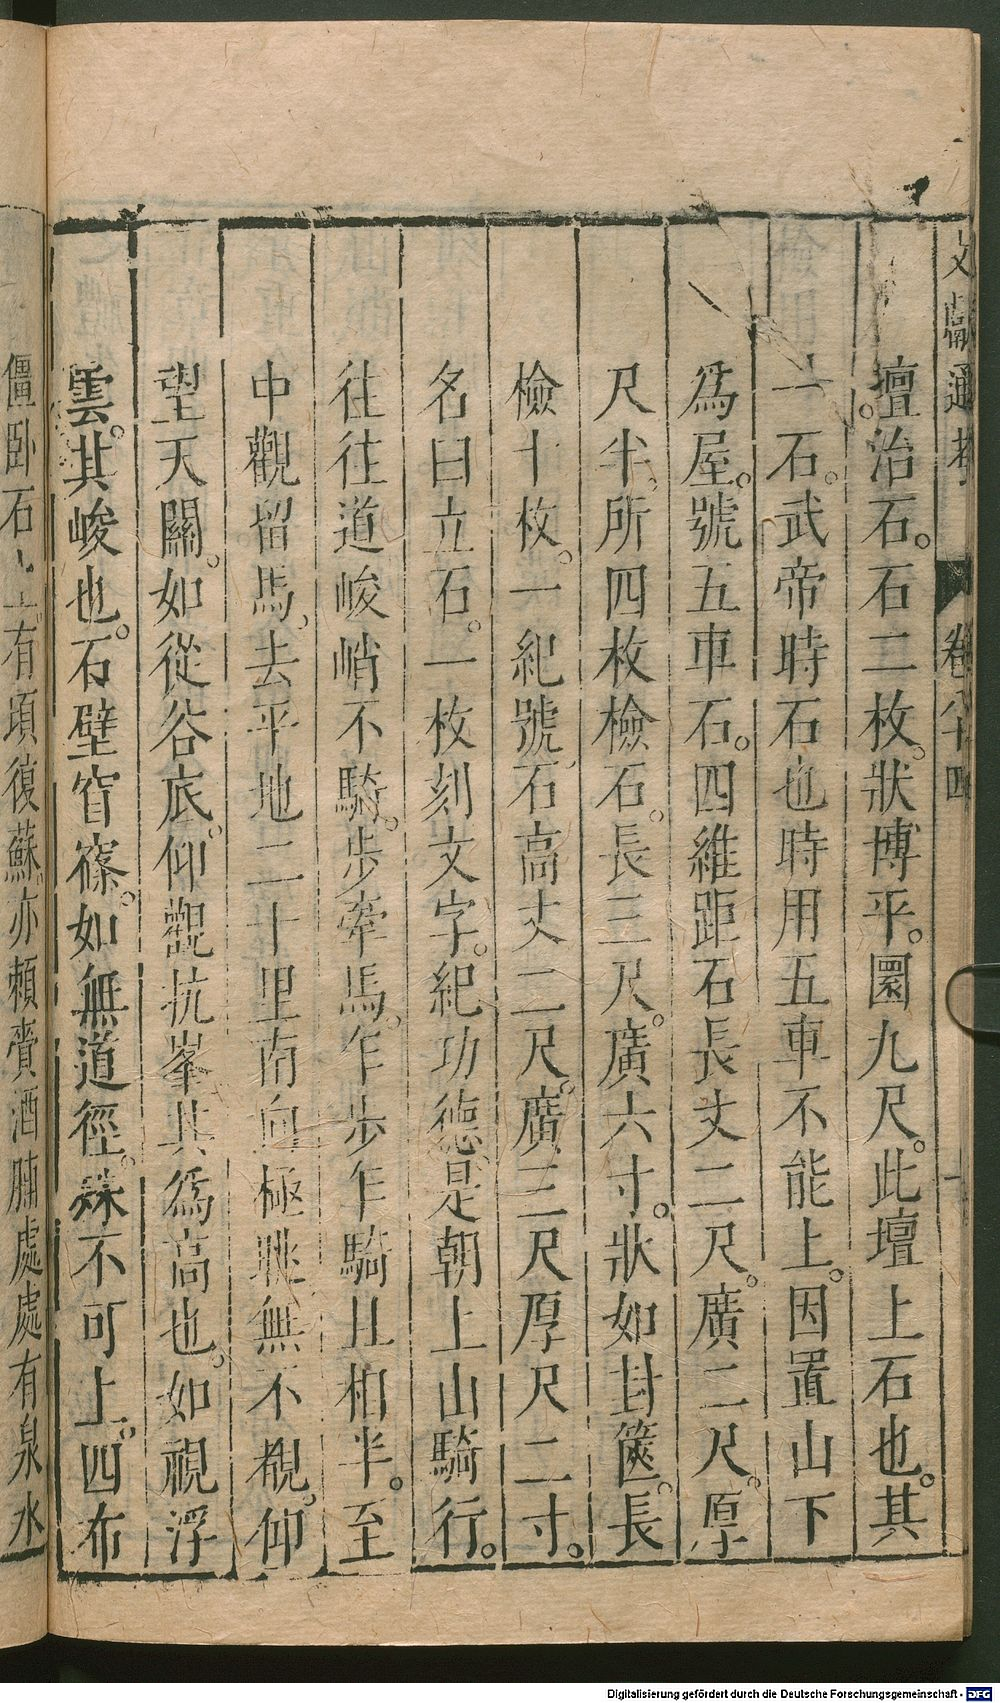 文獻通考 卷八十四
壇治石。石二枚。狀博平。圜九尺。此壇上石也。其
一石。武帝時石也時用五車不能上。因置山下
爲屋。號五車石。四維距石長丈二尺。廣二尺。厚
尺半。所四枚檢石。長三尺。廣六寸。狀如封篋。長
檢十枚。一紀號石高丈二尺。廣三尺厚尺二寸。
名曰立石。一枚刻文字。紀功德。是朝上山騎行。
往往道峻峭不騎。步牽馬。乍步乍騎且相半。至
中觀留馬。去平地二十里南向極眺無不覩。仰
望天關。如從谷底。仰觀抗峯其爲高也。如視浮
雲。其峻也。石壁窅窱。如無道徑。
不可上。四布
僵卧石上。有頃復蘇。亦賴齎酒脯處處有泉水
Digitalisierung gefördert durch die Deutsche Forschungsgemeinschaft - DFG